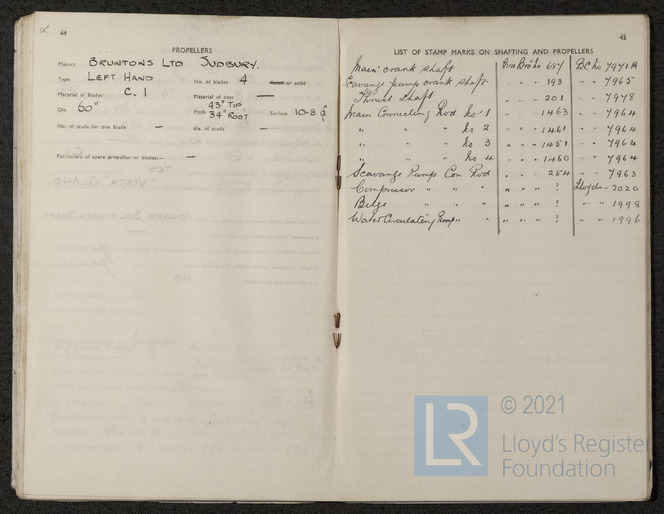 44
PROPELLERS
Makers BRUNTONS LTD SUDBURY.
Type LEFT HAND No. of blades 4 fixed or solid
Material of blades C. I Material of boss —
Dia. 60" Pitch 43" TIP 34" ROOT Surface 10-8
No. of studs for one blade — dia. of studs —
Particulars of spare propeller or blades:— —
45
LIST OF STAMP MARKS ON SHAFTING AND PROPELLERS
Main crank shaft Bro No 687 B.C. No 7971A
Scavange pump crank shaft " " " 193 " " 7965
Thrust shaft " " " 201 " " 7978
Main Connecting Rod No 1 " " " 1463 " " 7964
" " " No 2 " " " 1461 " " 7964
" " " No 3 " " " 1451 " " 7964
" " " No 4 " " " 1460 " " 7964
Scavange Pump Con Rod " " " 254 " " 7963
Compressor " " " " " " ? Lloyds - 2020
Bilge " " " ? " " 1998
Water Circulating Pump " " " " ? " " 1996
LR © 2021
Lloyd's Register
Foundation